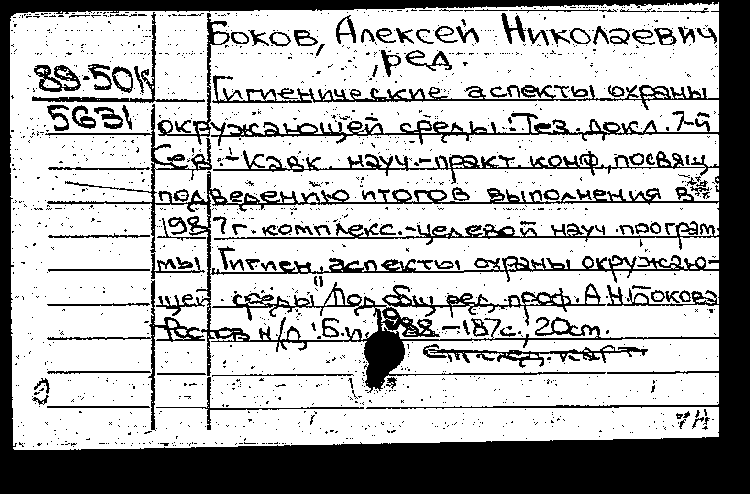 Боков, Алексей Николаевич
, ред.
89-50к
5631
Гигиенические аспекты охраны
окружающей среды : Тез. докл. 7-й
Сев.-Кавк. науч.-практ. конф., посвящ.
подведению итогов выполнения в
1987 г. комплекс.-целевой науч. програм-
мы "Гигиен. аспекты охраны окружаю-
щей среды" / Под общ. ред. проф. А.Н. Бокова
Ростов н/Д : Б.и., 1988. - 187 с.; 20 см.
См. след. карт.